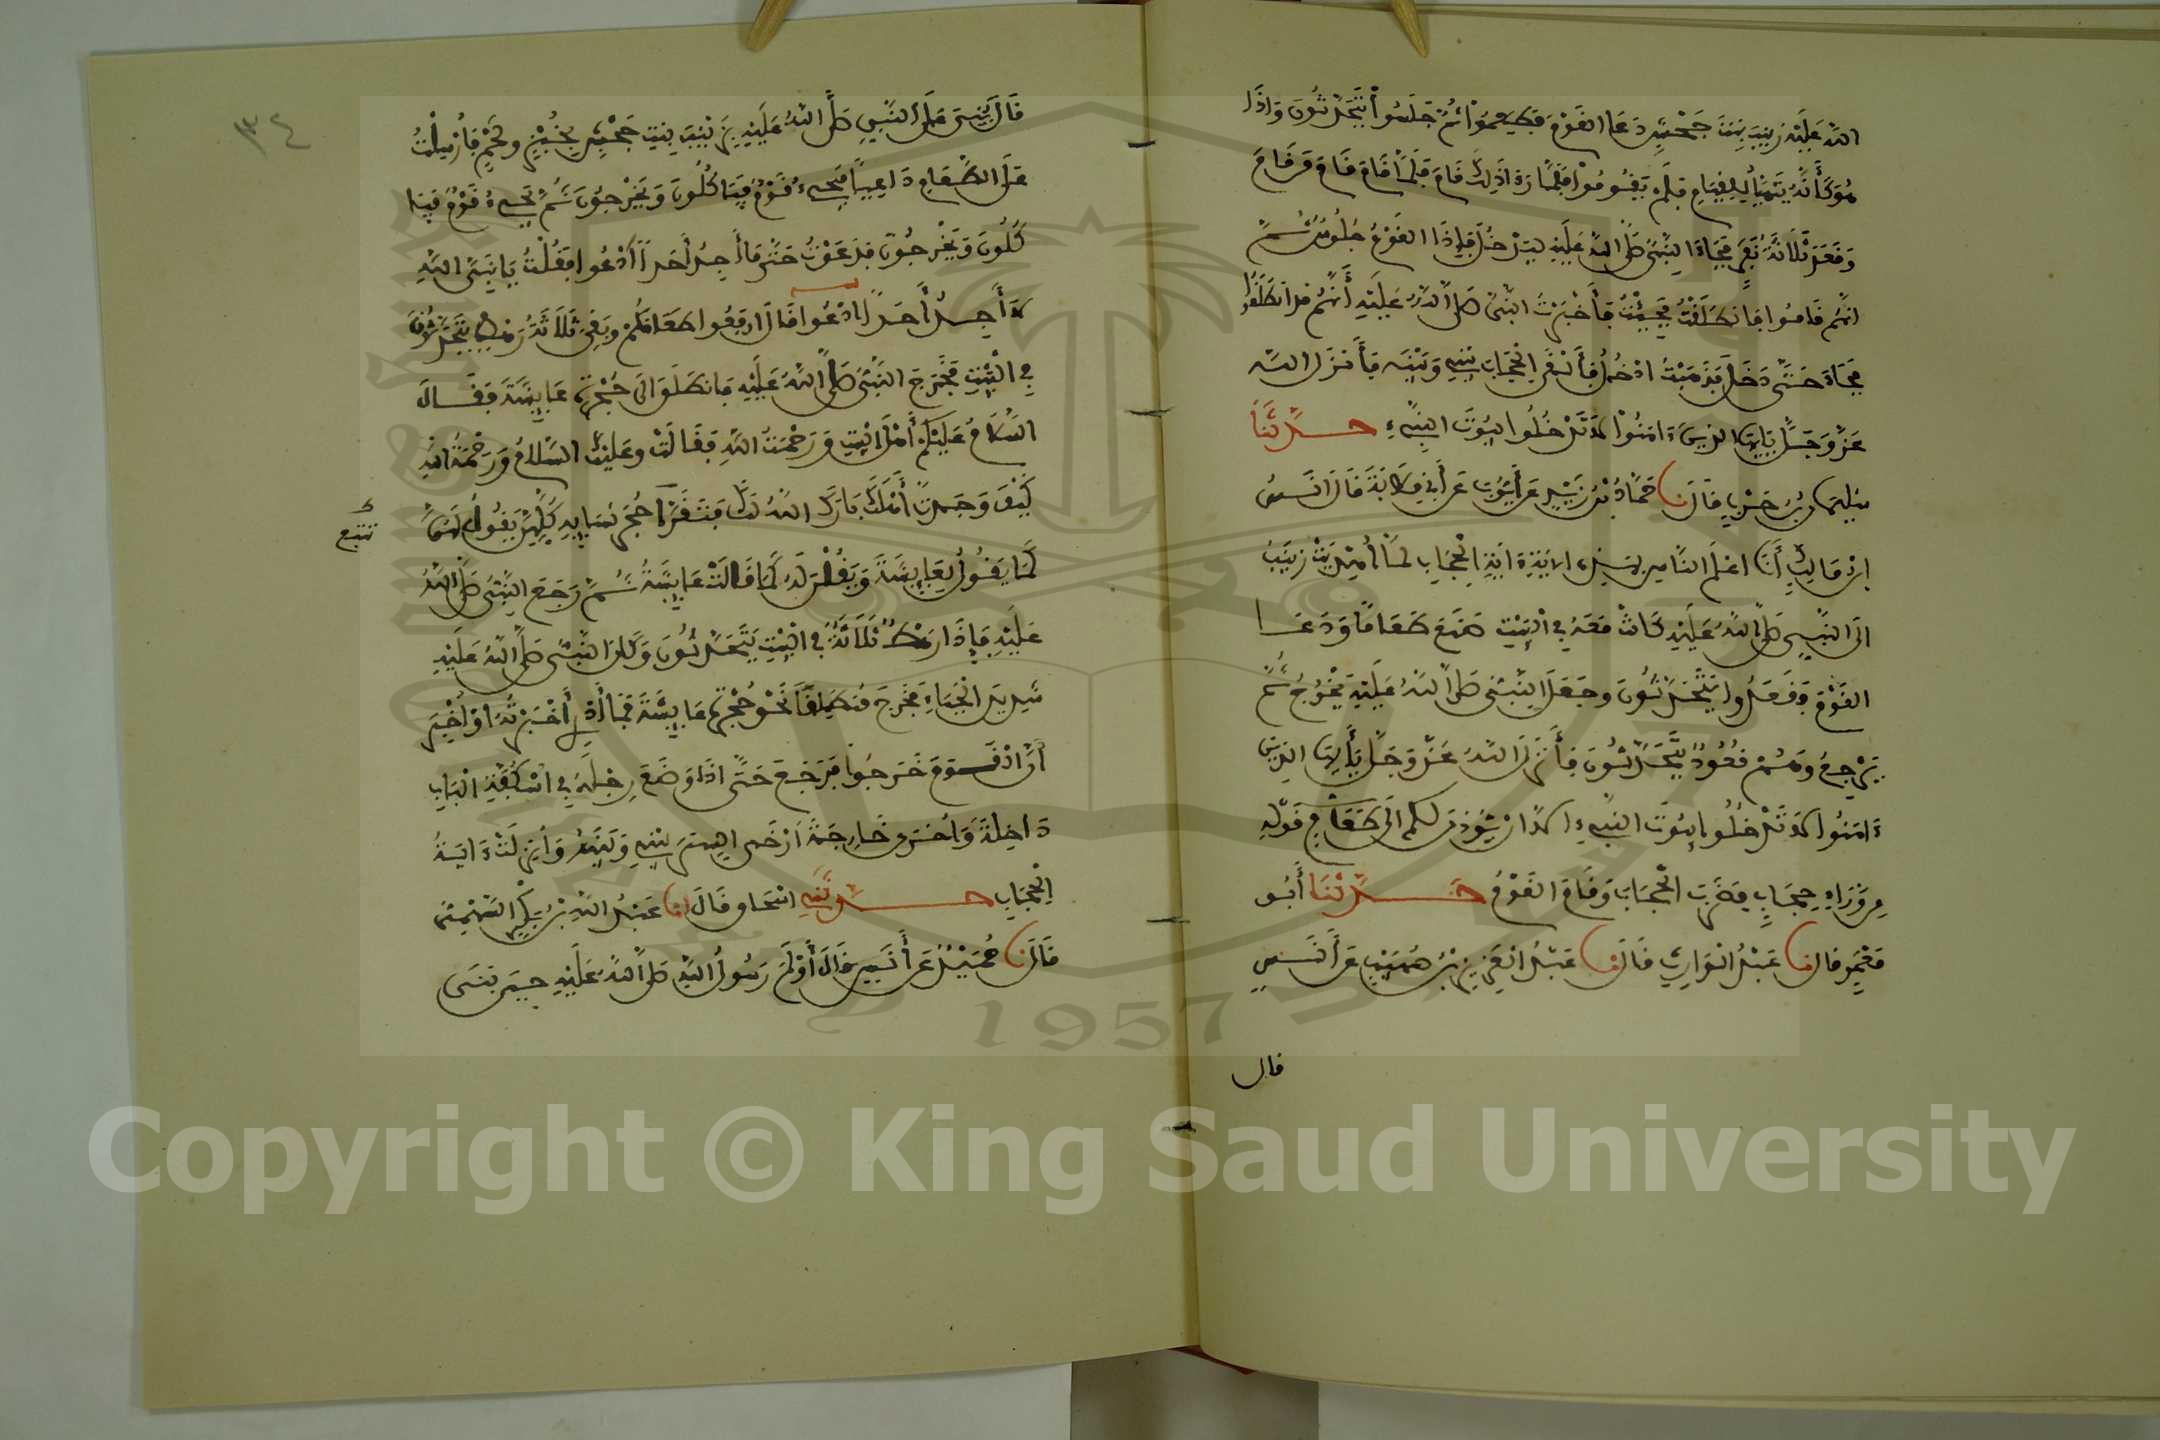 الله عليه زينب بنت جحش دعا القوم فطعموا ثم جلسوا يتحدثون واذا
هو كأنه يتهيأ للقيام فلم يقوموا فلما رءا ذلك قام فلما قام قام من قام
وقعد ثلاثة نفر فجاء النبي صلى الله عليه ليدخل فإذا القوم جلوس ثم
انهم قاموا فانطلقت فجئت فأخبرت النبي صلى الله عليه أنهم قد انطلقوا
فجاء حتى دخل فذهبت ادخل فألقى الحجاب بيني وبينه فأنزل الله
عز وجل يأيها الذين ءامنوا لا تدخلوا بيوت النبيء حدثنا
سليمان بن حرب قال نا حماد بن زيد عن أيوب عن أبي قلابة قال انس
ابن مالك أنا اعلم الناس بهذه الاية ءاية الحجاب لما أهديت زينب
الى النبي صلى الله عليه كانت معه في البيت صنع طعاما ودعا
القوم فقعدوا يتحدثون وجعل النبي صلى الله عليه يخرج ثم
يرجع وهم قعود يتحدثون فأنزل الله عز وجل يأيها الذين
ءامنوا لا تدخلوا بيوت النبيء الا ان يوذن لكم الى طعام قوله
من وراء حجاب فضرب الحجاب وقام القوم حدثنا أبو
معمر قال نا عبد الوارث قال نا عبد العزيز بن صهيب عن أنس
قال
٣٤
قال بني على النبي صلى الله عليه بزينب بنت جحش بخبز ولحم فأرسلت
على الطعام داعيا فيجيء قوم فيأكلون ويخرجون ثم يجيء قوم فيأ
كلون ويخرجون فدعوت حتى ما أجد أحدا أدعوا فقلت يا نبي الله
لا أجد أحدا ادعوا قال ارفعوا طعامكم وبقي ثلاثة رهط يتحدثون
في البيت فخرج النبي صلى الله عليه فانطلق الى حجرة عايشة فقال
السلام عليكم أهل البيت ورحمت الله فقالت وعليك السلام ورحمة الله
كيف وجدت أهلك بارك الله لك فتقرا حجر نسايه كلهن يقول لهن
كما يقول لعايشة ويقلن له كما قالت عايشة ثم رجع النبي صلى الله
عليه فإذا رهط ثلاثة في البيت يتحدثون وكان النبي صلى الله عليه
شديد الحياء فخرج منطلقا نحو حجرة عايشة فما أدري أخبرته او اخبر
أن القوم خرجوا فرجع حتى اذا وضع رجله في اسكفة الباب
داخلة وأخرى خارجة أرخى الستر بيني وبينه وأنزلت ءاية
الحجاب حدثني اسحاق قال انا عبد الله بن بكر السهمي
قال نا حميد عن أنس قال أولم رسول الله صلى الله عليه حين بنى
تتبع